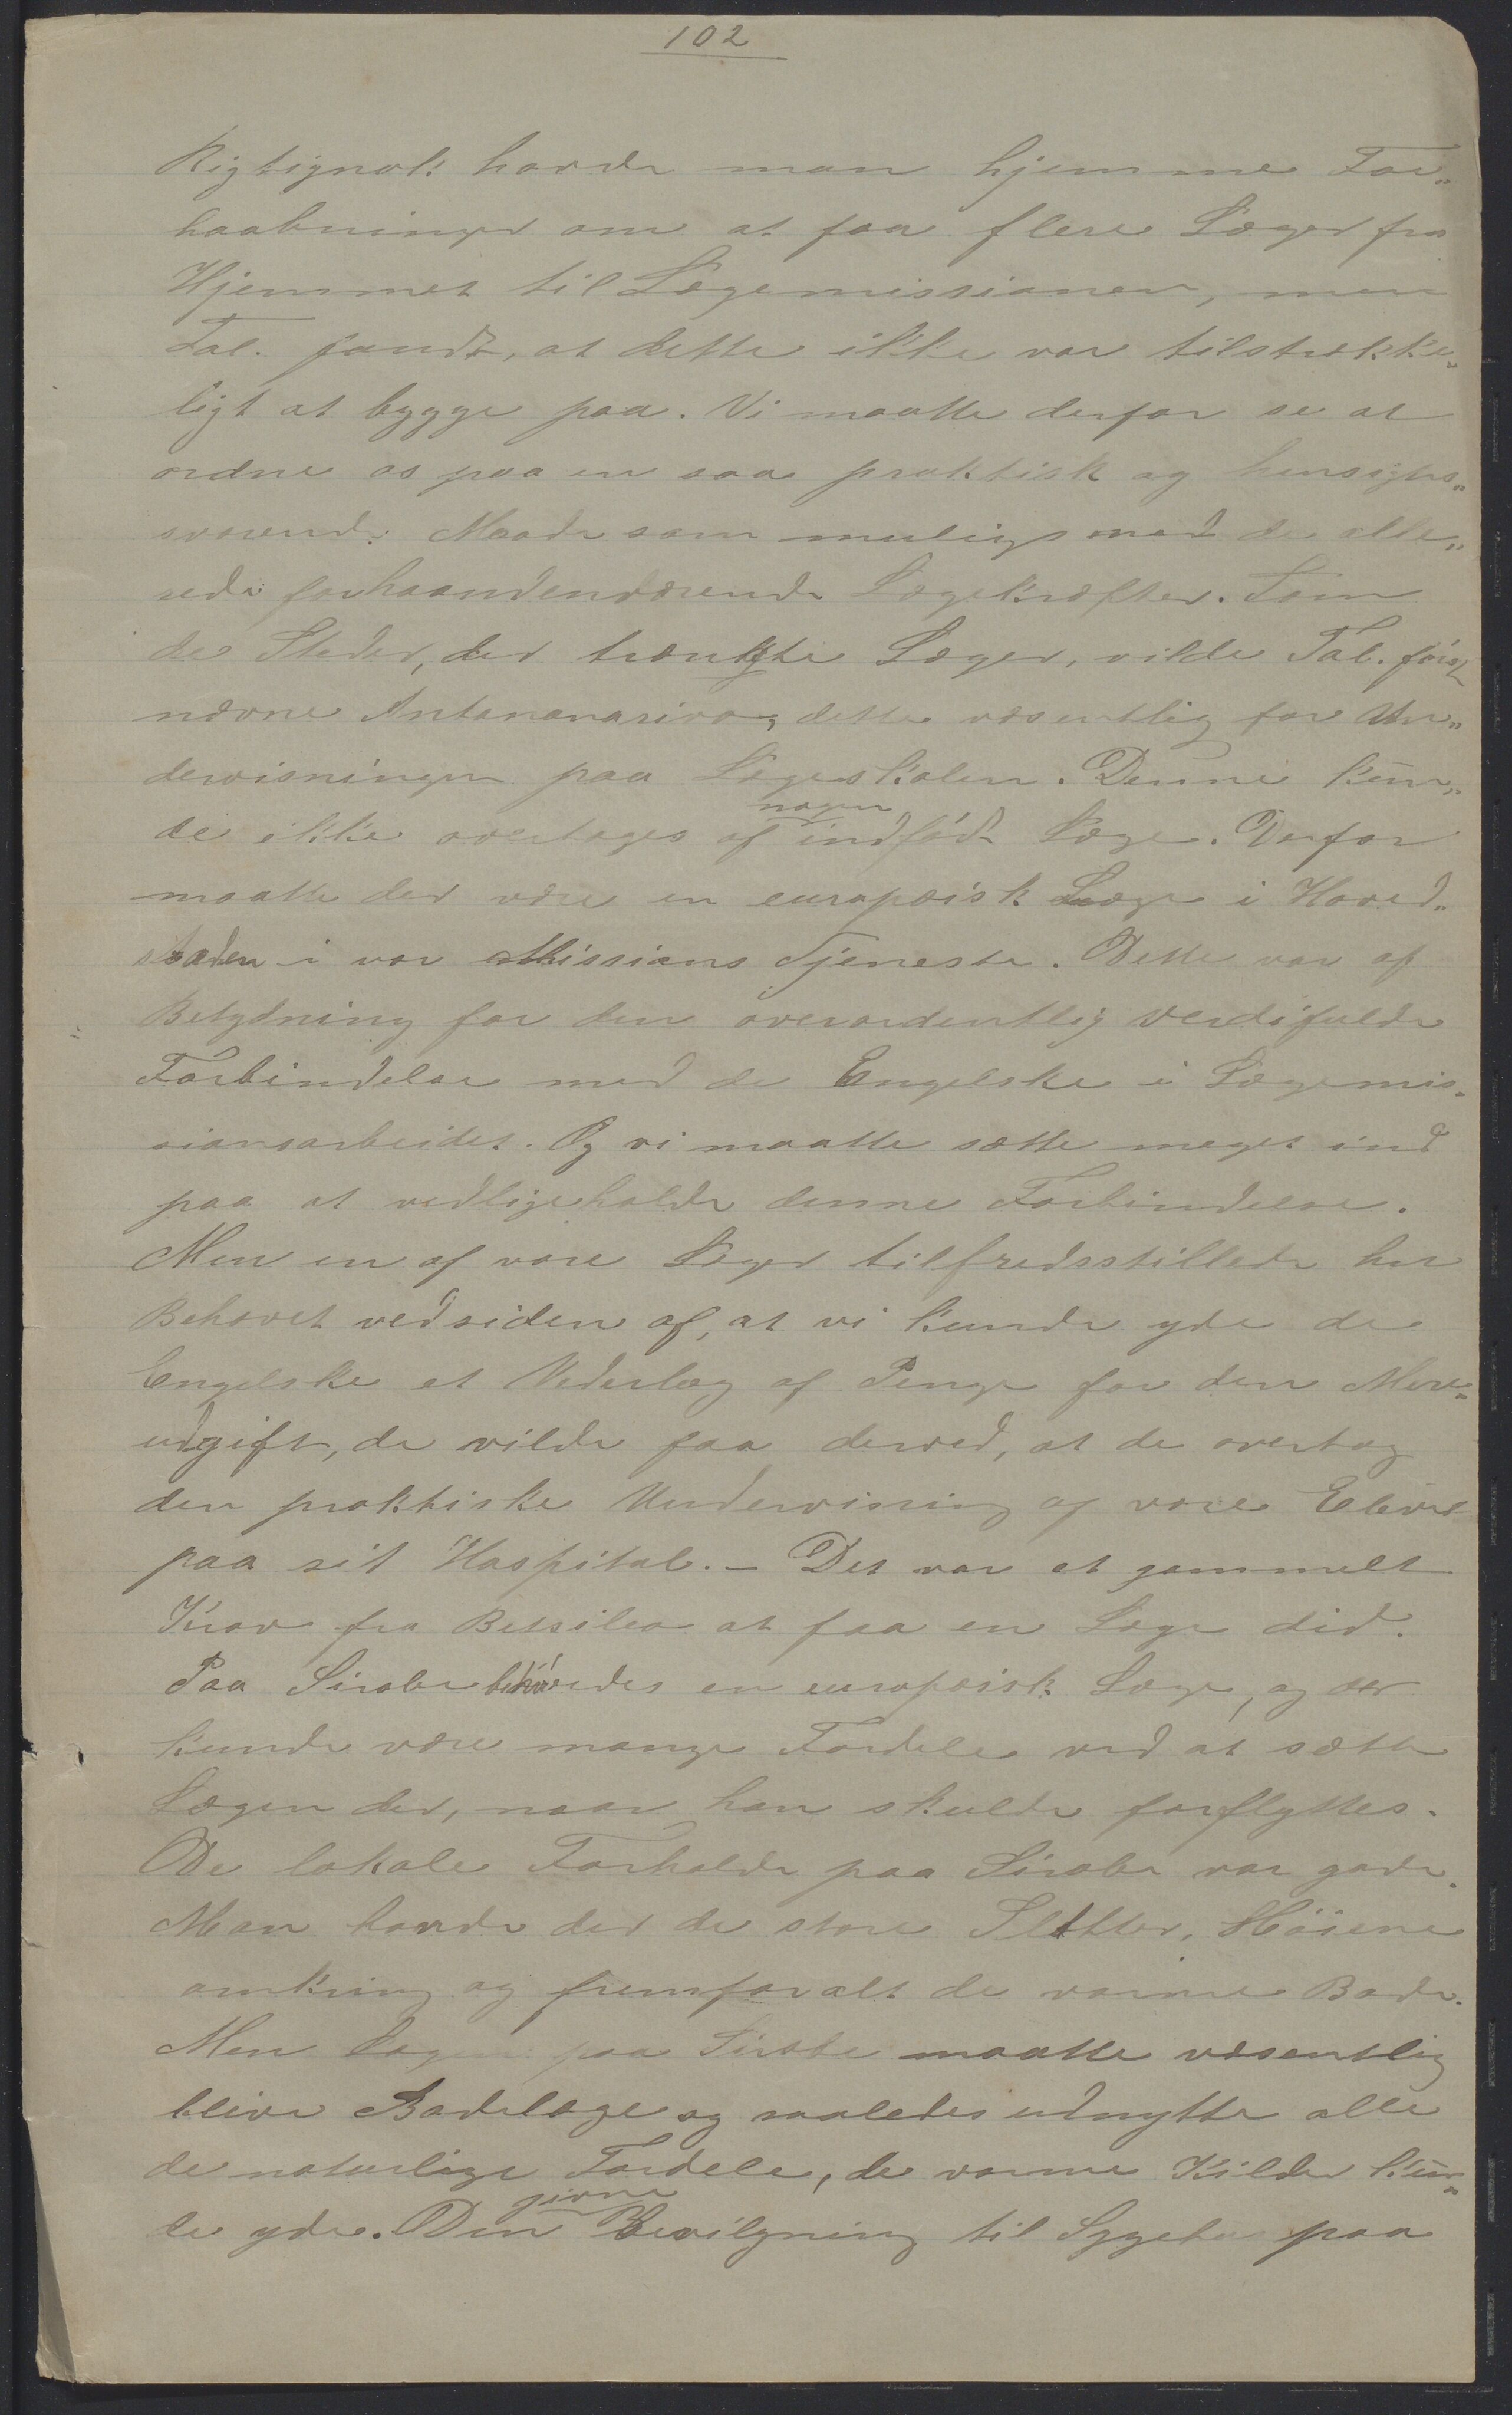 102
Rigtignok havde man hjemme For„
haabninger om at faa flere Læger fra
Hjemmet til Lægemissionen, men
Tal. fandt, at dette ikke var tilstrække„
ligt at bygge paa. Vi maatte derfor se at
ordne os paa en saa praktisk og hensigts„
svarende Maade som muligt med de alle„
rede forhaandenværende Lægekræfter. Som
de Steder, der trængte Læger, vilde Tal. først
nævne Antananarivo, dette væsentlig for Un„
dervisningen paa Lægeskolen. Denne kun„
de ikke overtages af nogen indfødt Læge. Derfor
maatte der være en europæisk Læge i Hoved„
staden i vor Missions Tjeneste. Dette var af
Betydning for den overordentlig værdifulde
Forbindelse med de Engelske i Lægemis„
sionsarbeidet. Og vi maatte sætte meget ind
paa at vedligeholde denne Forbindelse.
Men en af vore Læger tilfredsstillede her
Behovet ved siden af, at vi kunde yde de
Engelske et Vederlag af Penge for den Mer„
udgift, de vilde faa derved, at de overtog
den praktiske Undervisning af vore Elever
paa sit Hospital. – Det var et gammelt
Krav fra Betsileo at faa en Læge did.
Paa Sirabe behövedes en europæisk Læge, og der
kunde være mange Fordele ved at sætte
Lægen der, naar han skulde forflyttes.
De lokale Forholde paa Sirabe var gode.
Man havde der de store Sletter, Höiene
omkring og fremfor alt de varme Bade.
Men Lægen paa Sirabe maatte væsentlig
blive Badelæge og saaledes udnytte alle
de naturlige Fordele, de varme Kilder kun„
de yde. Den givne Bevilgning til Sygehus paa